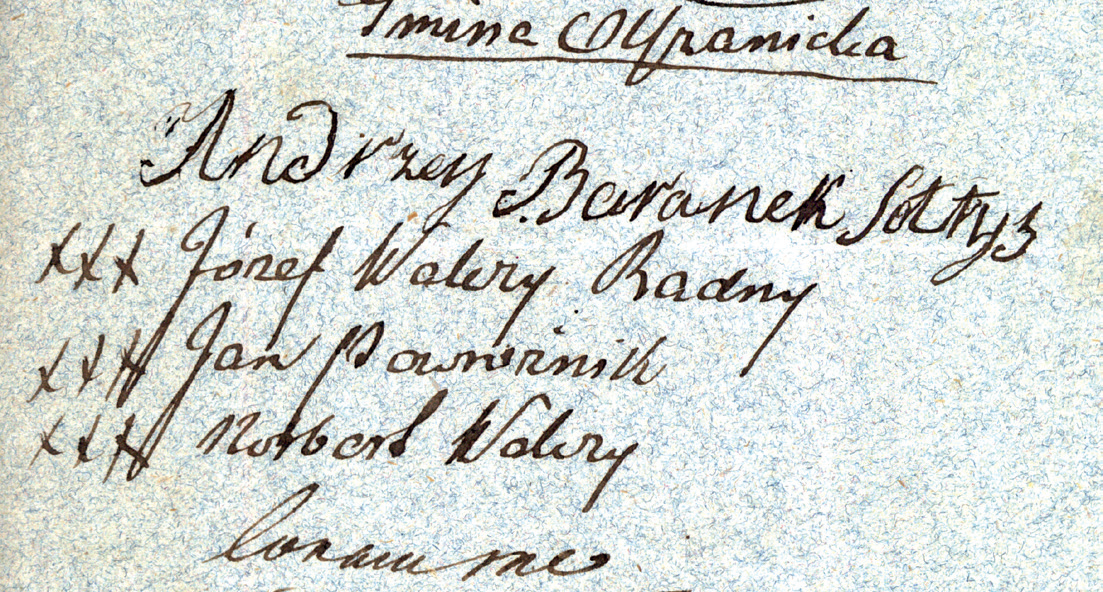 Gmina
Andrzey Baranek Sołtys
xxx Józef Walery Radny
xxx Jan Powroźnik
xxx Norbert Walery
Coram me